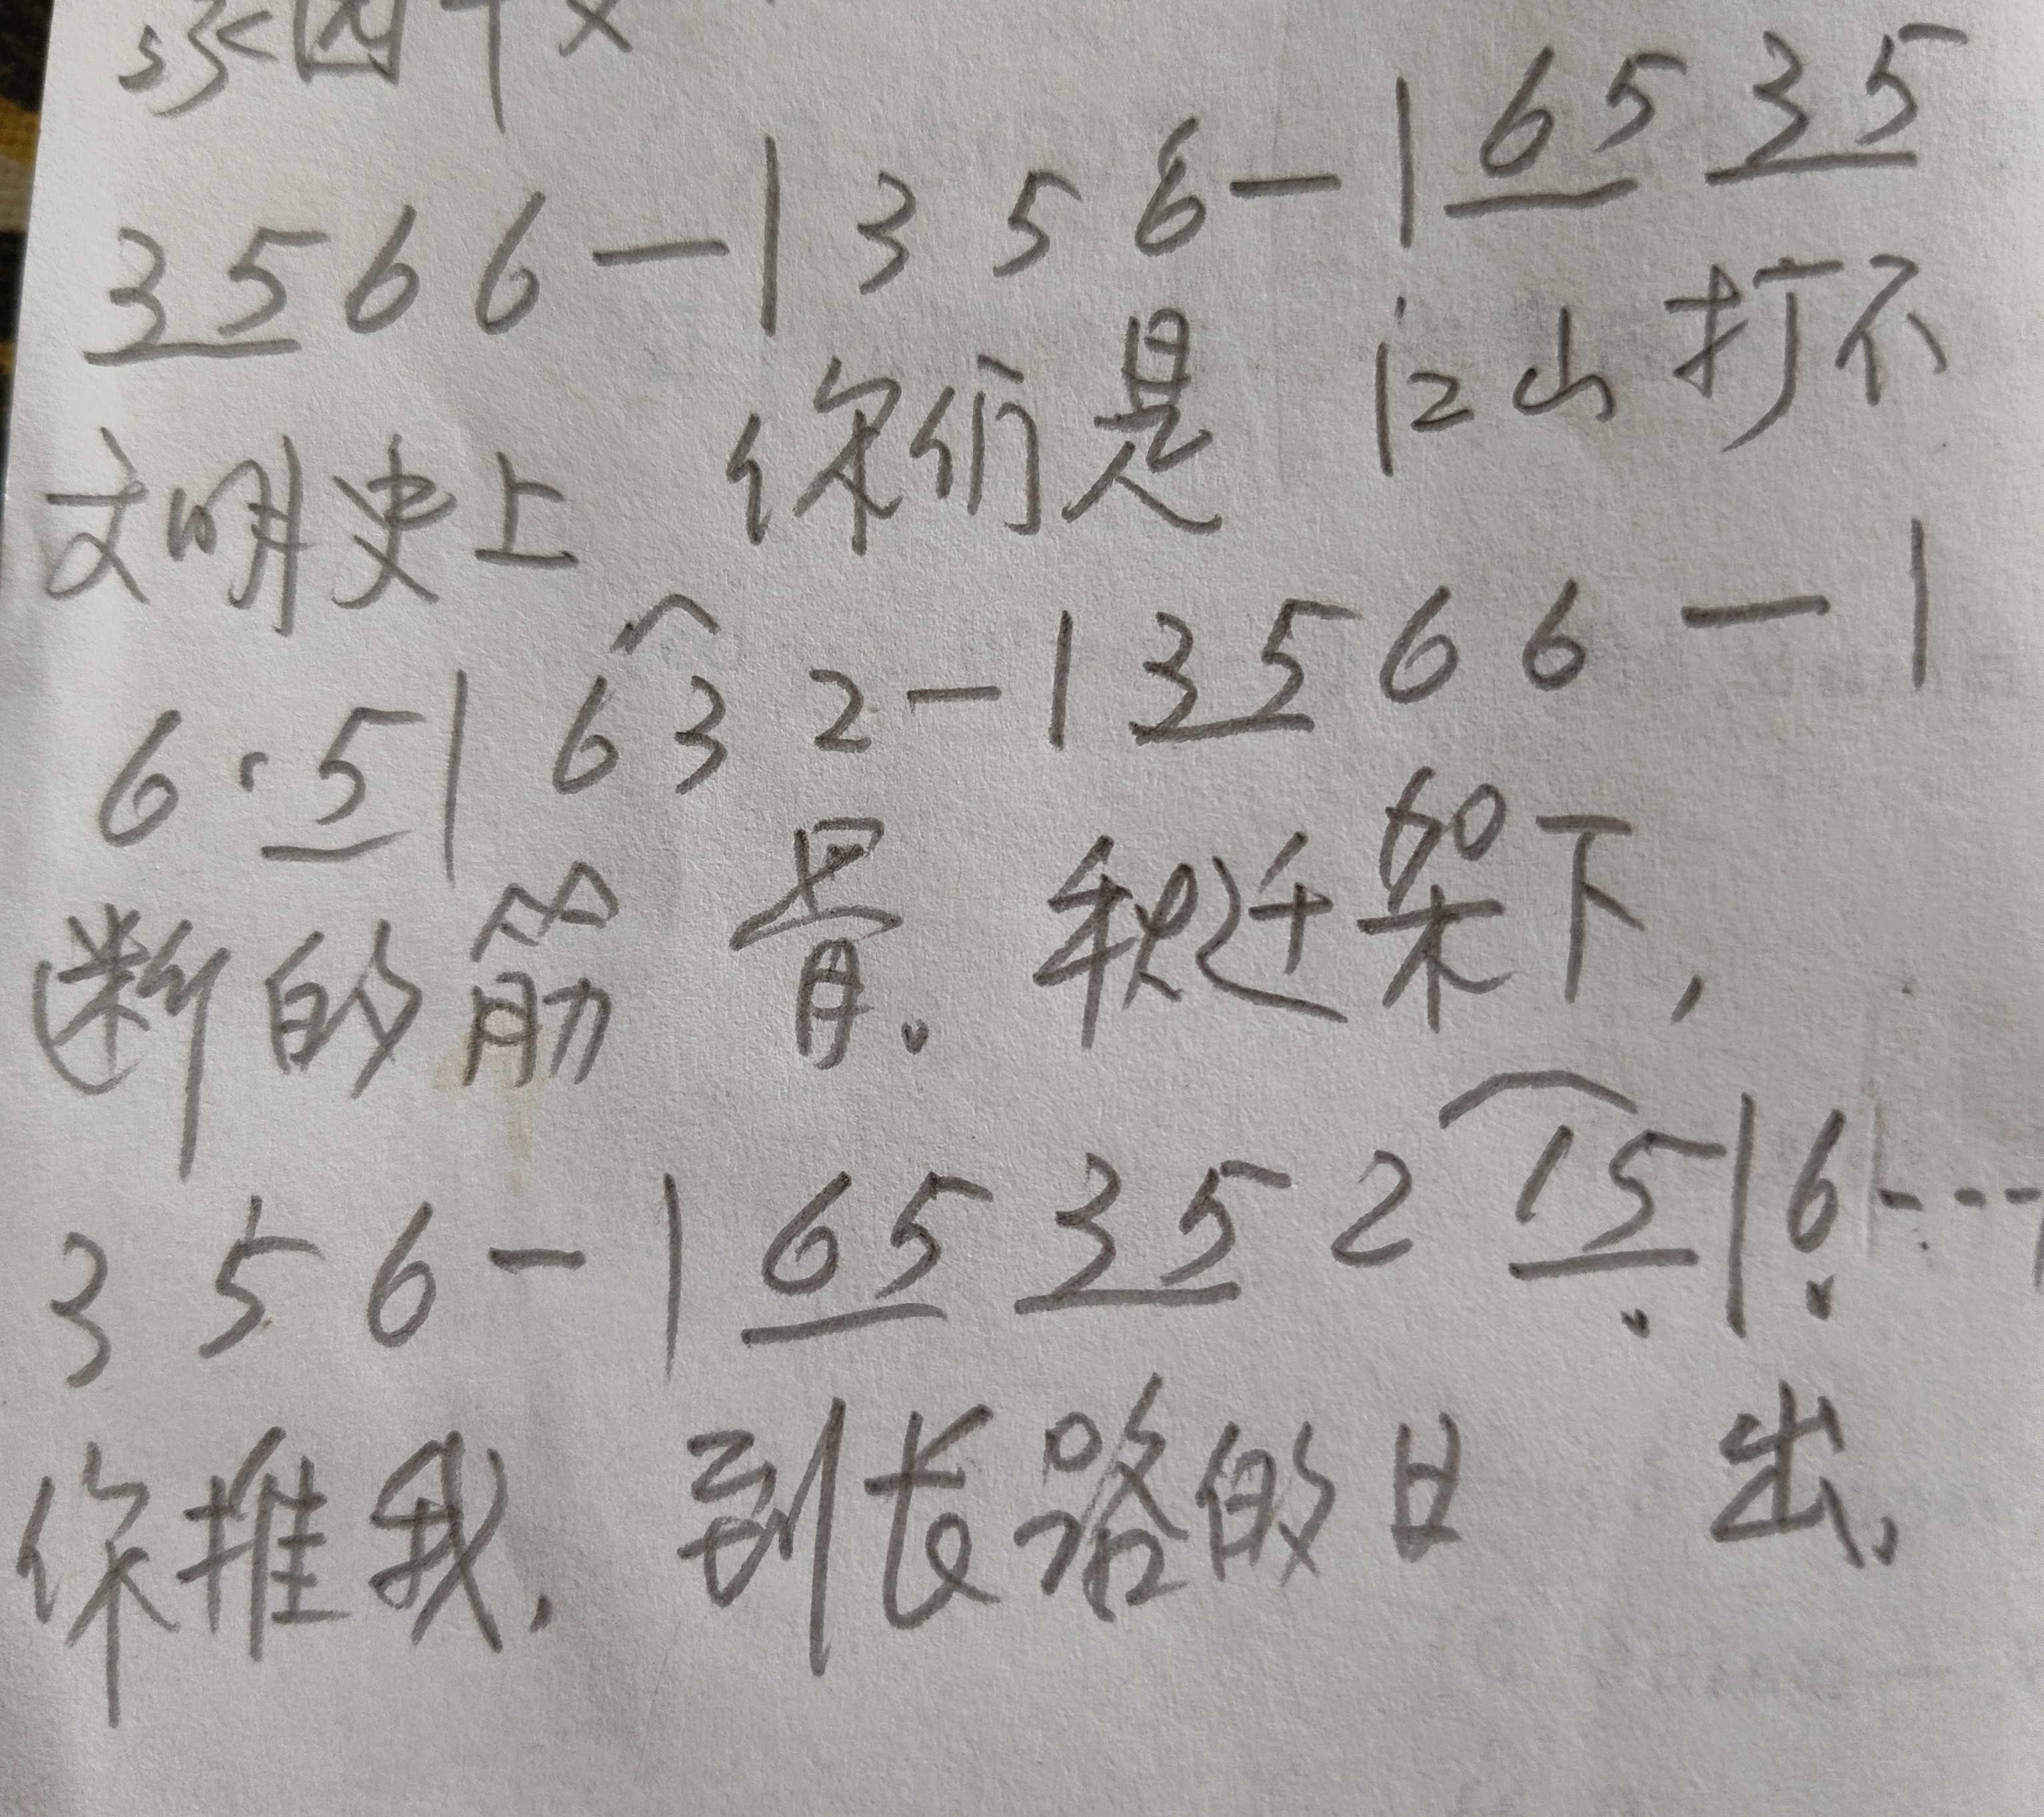 3 5 6 6 — | 3 5 6 — | 6 5 3 5
文明史上 你们是 江山打不
6 · 5 | 6 3 2 — | 3 5 6 6 — |
断的筋 骨。秋迁架下，
3 5 6 — | 6 5 3 5 2 1 5 | 6 - - -
你推我，到长路的日 出。